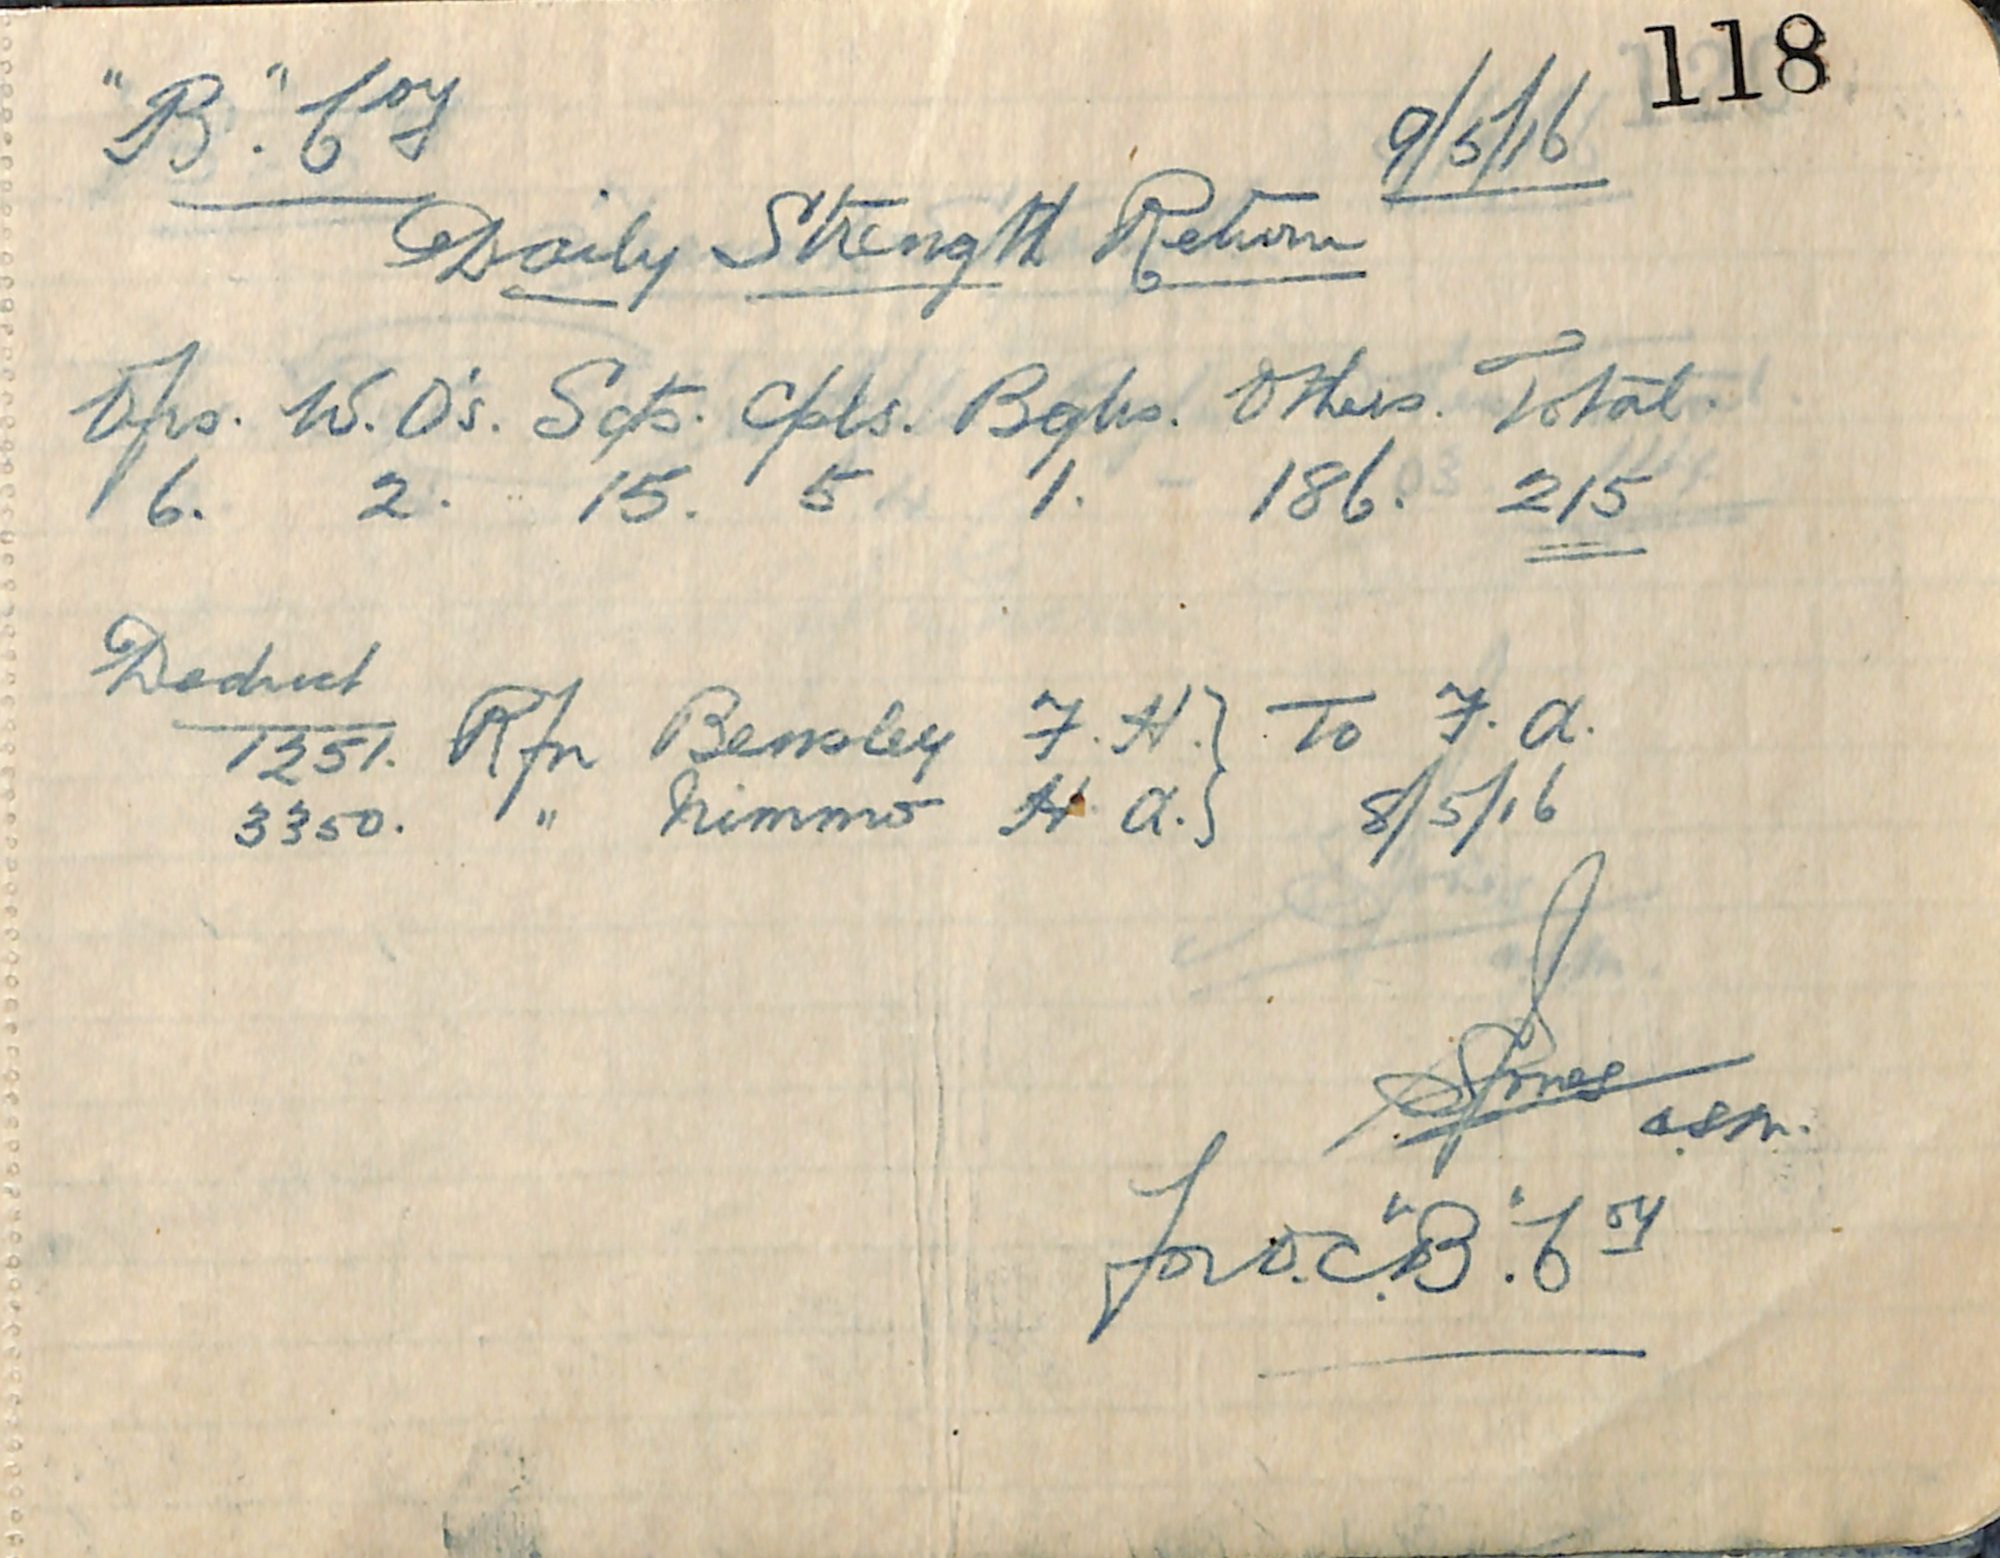 118
"B". Coy 9/5/16
Daily Strength Return
Ofrs. W. O's. Sgts. Cpls. Bglrs. Others. Total.
6. 2. 15. 5 1. 186. 215
Deduct
1351. Rfn Bensley F. H. } To F. A.
3350. " Nimmo H A. } 8/5/16
Jones
C.S.M.
for O.C. "B". Coy